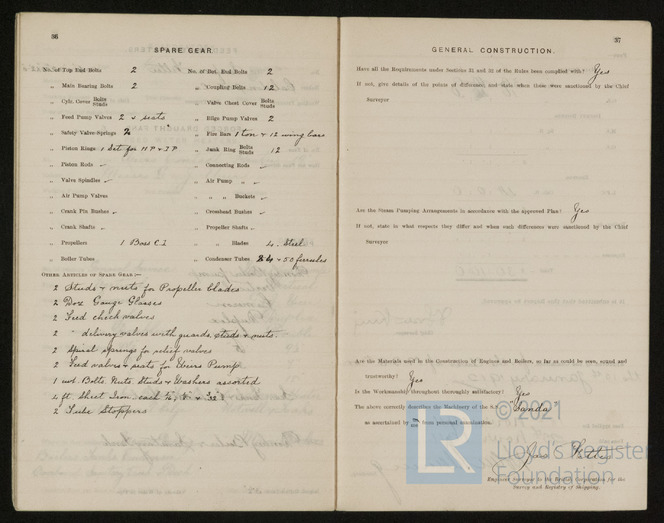 36
SPARE GEAR.
No. of Top End Bolts 2 No. of Bot. End Bolts 2
„ Main Bearing Bolts 2 „ Coupling Bolts 12
„ Cylr. Cover Bolts Studs „ Valve Chest Cover Bolts Studs
„ Feed Pump Valves 2 & seats „ Bilge Pump Valves 2
„ Safety Valve Springs 2 „ Fire Bars 1 ton & 12 wing bars
„ Piston Rings 1 Set for HP & IP „ Junk Ring Bolts Studs 12
„ Piston Rods „ Connecting Rods
„ Valve Spindles „ Air Pump „
„ Air Pump Valves „ „ „ Buckets
„ Crank Pin Bushes „ Crosshead Bushes
„ Crank Shafts „ Propeller Shafts
„ Propellers 1 Boss C.I. „ „ Blades 4. Steel
„ Boiler Tubes „ Condenser Tubes & 50 ferrules
OTHER ARTICLES OF SPARE GEAR:—
2 Studs & nuts for Propeller blades
2 Doz Gauge Glasses
2 Feed check valves
2 " delivery valves with guards, studs & nuts.
2 Spiral springs for relief valves
2 Feed valves & seats for Weirs Pump
1 cwt. Bolts. Nuts. Studs & Washers assorted
4 ft. Sheet Iron. each
2 Tube Stoppers
37
GENERAL CONSTRUCTION.
Have all the Requirements under Sections 31 and 32 of the Rules been complied with? Yes
If not, give details of the points of difference, and state when these were sanctioned by the Chief
Surveyor
Are the Steam Pumping Arrangements in accordance with the approved Plan? Yes
If not, state in what respects they differ and when such differences were sanctioned by the Chief
Surveyor
Are the Materials used in the Construction of Engines and Boilers, so far as could be seen, sound and
trustworthy? Yes
Is the Workmanship throughout thoroughly satisfactory? Yes
The above correctly describes the Machinery of the S.S. "Sanda"
as ascertained by me from personal examination.
Engineer Surveyor to the British Corporation for the
Survey and Registry of Shipping.
© 2021
LR
Lloyd's Register
Foundation